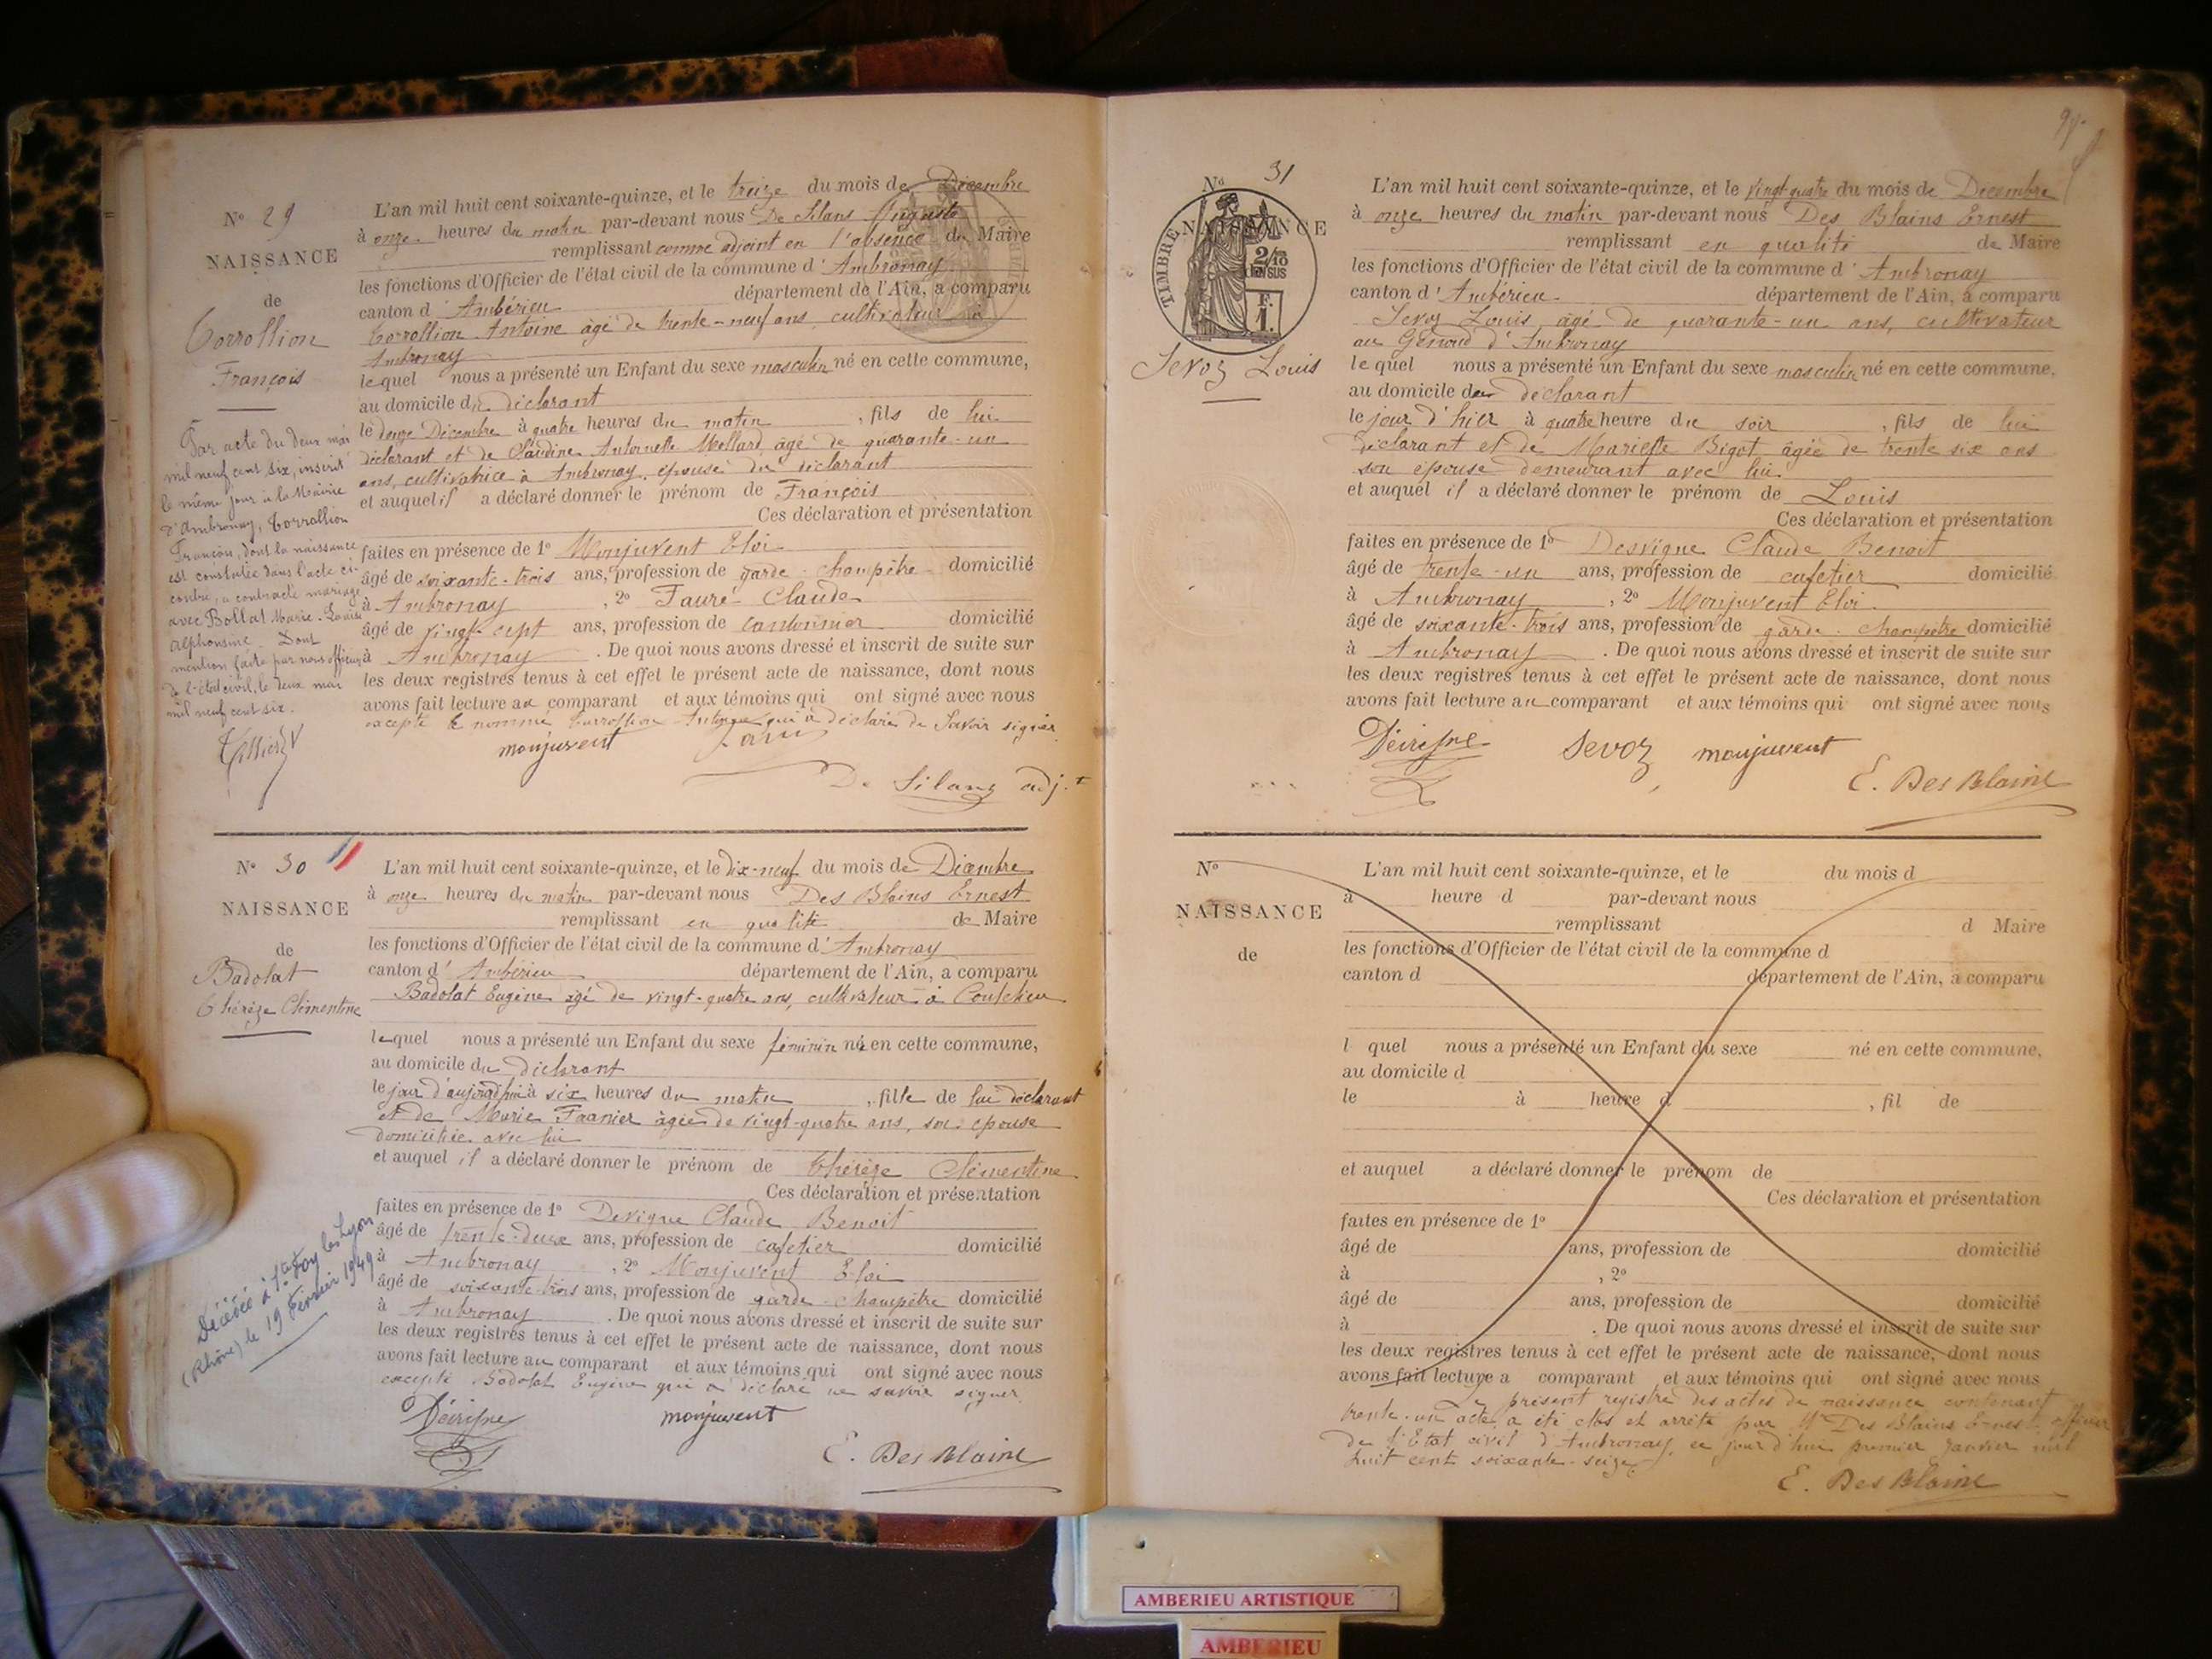 Nº 29
NAISSANCE
de
Corrollion
François
Par acte du deux mai
mil neuf cent six, inscrit
le même jour à la Mairie
d'Ambronay, Corrollion
François, dont la naissance
est constatée dans l'acte ci-
contre, a contracté mariage
avec Bollat Marie-Louise
Alphonsine. Dont
mention faite par nous officier
de l'état civil, le deux mai
mil neuf cent six.
L'an mil huit cent soixante-quinze, et le treize du mois de Décembre
à onze heures du matin par-devant nous De Silans Auguste
remplissant comme adjoint en l'absence du Maire
les fonctions d'Officier de l'état civil de la commune d'Ambronay
canton d'Ambérieu département de l'Ain, a comparu
Corrollion Antoine âgé de trente-neuf ans, cultivateur à
Ambronay
lequel nous a présenté un Enfant du sexe masculin né en cette commune,
au domicile du déclarant
le douze Décembre à quatre heures du matin, fils de lui
déclarant et de Claudine Antoinette Mollard âgé de quarante-un
ans, cultivatrice à Ambronay, épouse du déclarant
et auquel il a déclaré donner le prénom de François
Ces déclaration et présentation
faites en présence de 1º Monjuvent Eloi
âgé de soixante-trois ans, profession de garde-champêtre domicilié
à Ambronay, 2º Fauré Claude
âgé de vingt-sept ans, profession de cantonnier domicilié
à Ambronay. De quoi nous avons dressé et inscrit de suite sur
les deux registres tenus à cet effet le présent acte de naissance, dont nous
avons fait lecture au comparant et aux témoins qui ont signé avec nous
excepté le nommé Corrollion Antoine qui a déclaré ne savoir signer
monjuvent
De Silans adj.t
Nº 30
NAISSANCE
de
Badolat
Thérèze Clémentine
Décédée à Ste Foy les Lyon
(Rhône) le 19 Février 1949
L'an mil huit cent soixante-quinze, et le dix-neuf du mois de Décembre
à onze heures du matin par-devant nous Des Blains Ernest
remplissant en qualité de Maire
les fonctions d'Officier de l'état civil de la commune d'Ambronay
canton d'Ambérieu département de l'Ain, a comparu
Badolat Eugène âgé de vingt-quatre ans, cultivateur à Coutelieu
lequel nous a présenté un Enfant du sexe féminin né en cette commune,
au domicile du déclarant
le jour d'aujourd'hui à six heures du matin, fille de lui déclarant
et de Marie Franier âgée de vingt-quatre ans, son épouse
domiciliée avec lui
et auquel il a déclaré donner le prénom de Thérèze Clémentine
Ces déclaration et présentation
faites en présence de 1º Devigne Claude Benoit
âgé de trente-deux ans, profession de cafetier domicilié
à Ambronay, 2º Monjuvent Eloi
âgé de soixante-trois ans, profession de garde-champêtre domicilié
à Ambronay. De quoi nous avons dressé et inscrit de suite sur
les deux registres tenus à cet effet le présent acte de naissance, dont nous
avons fait lecture au comparant et aux témoins qui ont signé avec nous
excepté Badolat Eugène qui a déclaré ne savoir signer
monjuvent
E. Des Blains
Nº 31
NAISSANCE
TIMBRE
2/10
EN SUS
F.
1.
Sevoz Louis
L'an mil huit cent soixante-quinze, et le vingt-quatre du mois de Décembre
à onze heures du matin par-devant nous Des Blains Ernest
remplissant en qualité de Maire
les fonctions d'Officier de l'état civil de la commune d'Ambronay
canton d'Ambérieu département de l'Ain, a comparu
Sevoz Louis, âgé de quarante-un ans, cultivateur
au Genoud d'Ambronay
lequel nous a présenté un Enfant du sexe masculin né en cette commune,
au domicile du déclarant
le jour d'hier à quatre heure du soir, fils de lui
déclarant et de Mariette Bigot, âgée de trente six ans
son épouse demeurant avec lui
et auquel il a déclaré donner le prénom de Louis
Ces déclaration et présentation
faites en présence de 1º Desvigne Claude Benoit
âgé de trente-un ans, profession de cafetier domicilié
à Ambronay, 2º Monjuvent Eloi
âgé de soixante-trois ans, profession de garde-champêtre domicilié
à Ambronay. De quoi nous avons dressé et inscrit de suite sur
les deux registres tenus à cet effet le présent acte de naissance, dont nous
avons fait lecture au comparant et aux témoins qui ont signé avec nous
Sevoz monjuvent
E. Des Blains
Nº
NAISSANCE
de
L'an mil huit cent soixante-quinze, et le du mois d
à heure d par-devant nous
remplissant d Maire
les fonctions d'Officier de l'état civil de la commune d
canton d département de l'Ain, a comparu
l quel nous a présenté un Enfant du sexe né en cette commune,
au domicile d
le à heure d , fil de
et auquel a déclaré donner le prénom de
Ces déclaration et présentation
faites en présence de 1º
âgé de ans, profession de domicilié
à , 2º
âgé de ans, profession de domicilié
à . De quoi nous avons dressé et inscrit de suite sur
les deux registres tenus à cet effet le présent acte de naissance, dont nous
avons fait lecture a comparant et aux témoins qui ont signé avec nous
Le présent registre des actes de naissance contenant
trente-un acte, a été clos et arrêté par Mr Des Blains Ernest officier
de l'Etat civil d'Ambronay, ce jour d'hui premier janvier mil
huit cent soixante-seize
E. Des Blains
AMBERIEU ARTISTIQUE
AMBERIEU